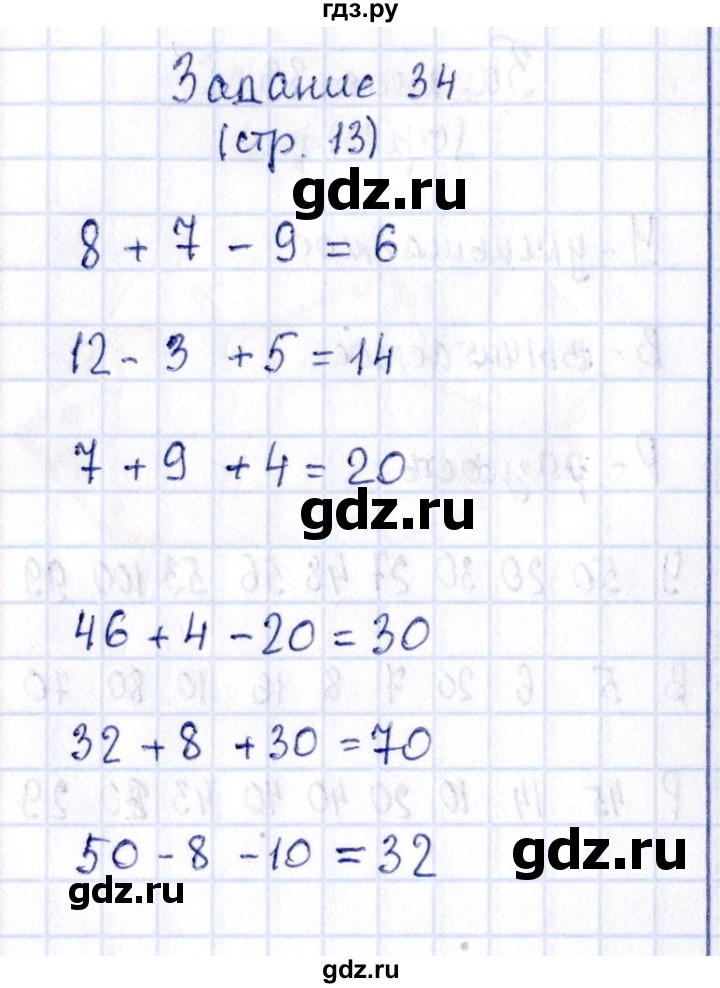 гдз.ру
Задание 34
(стр. 13)
gdz.ru
8 + 7 - 9 = 6
12 - 3 + 5 = 14
7 + 9 + 4 = 20
gdz.ru
46 + 4 - 20 = 30
32 + 8 + 30 = 70
50 - 8 - 10 = 32
gdz.ru
gdz.ru
gdz.ru